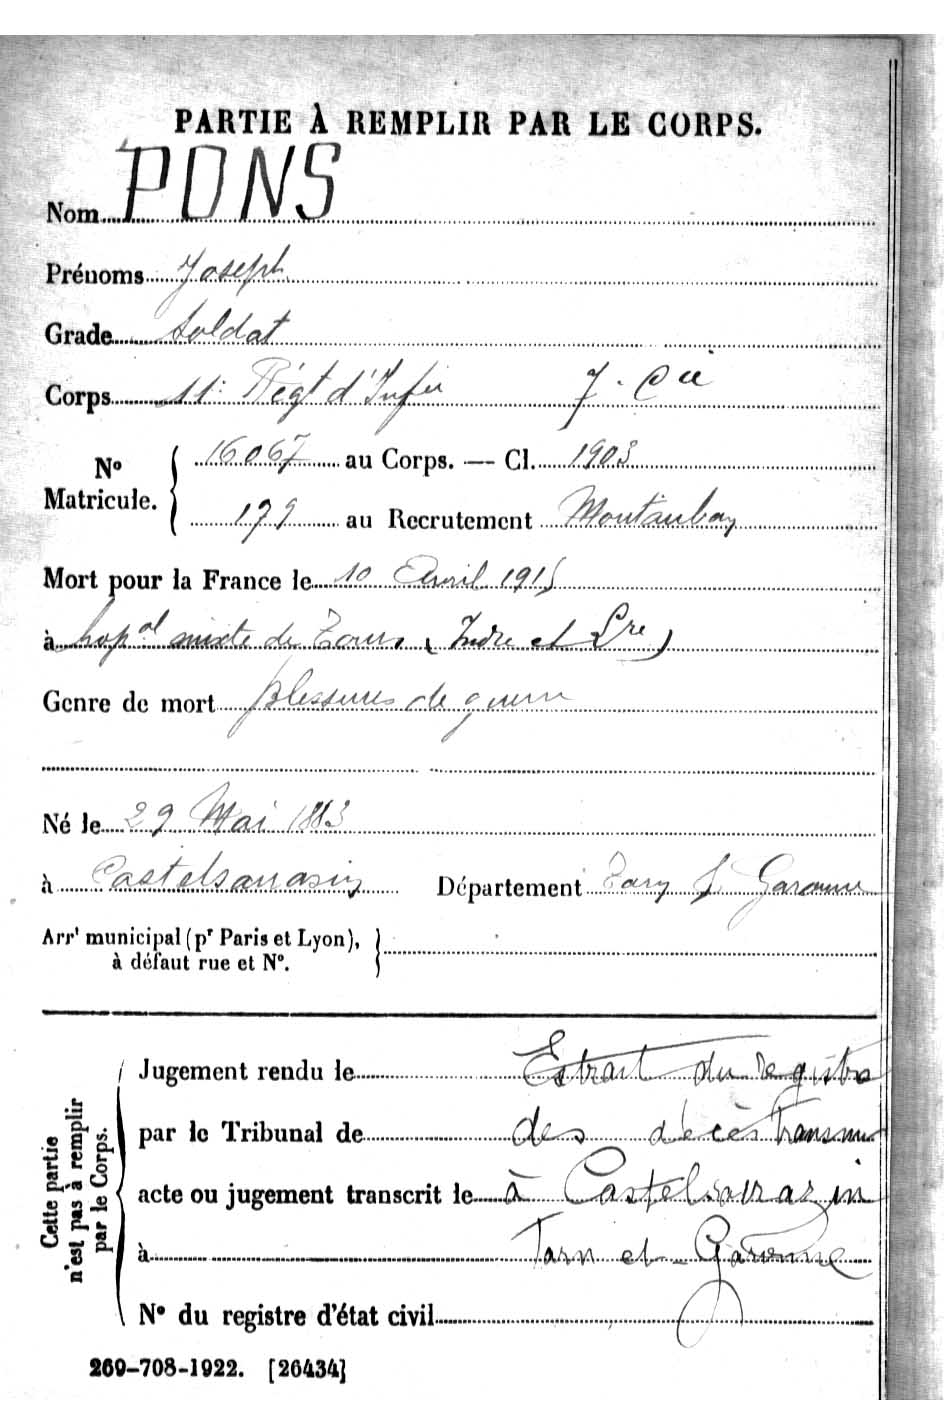 PARTIE À REMPLIR PAR LE CORPS.
Nom PONS
Prénoms Joseph
Grade Soldat
Corps 11e Régt d'Infie 7. Cie
No Matricule. 16067 au Corps. — Cl. 1903
179 au Recrutement Montauban
Mort pour la France le 10 Avril 1915
à hopal mixte de Tours (Indre et Lre)
Genre de mort blessures de guerre
Né le 29 Mai 1883
à Castelsarrasin Département Tarn & Garonne
Arrt municipal (pr Paris et Lyon),
à défaut rue et No.
Cette partie
n'est pas à remplir
par le Corps.
Jugement rendu le Extrait du registre
par le Tribunal de des décès transmis
acte ou jugement transcrit le à Castelsarrazin
à Tarn et Garonne
No du registre d'état civil
269-708-1922. [26434]